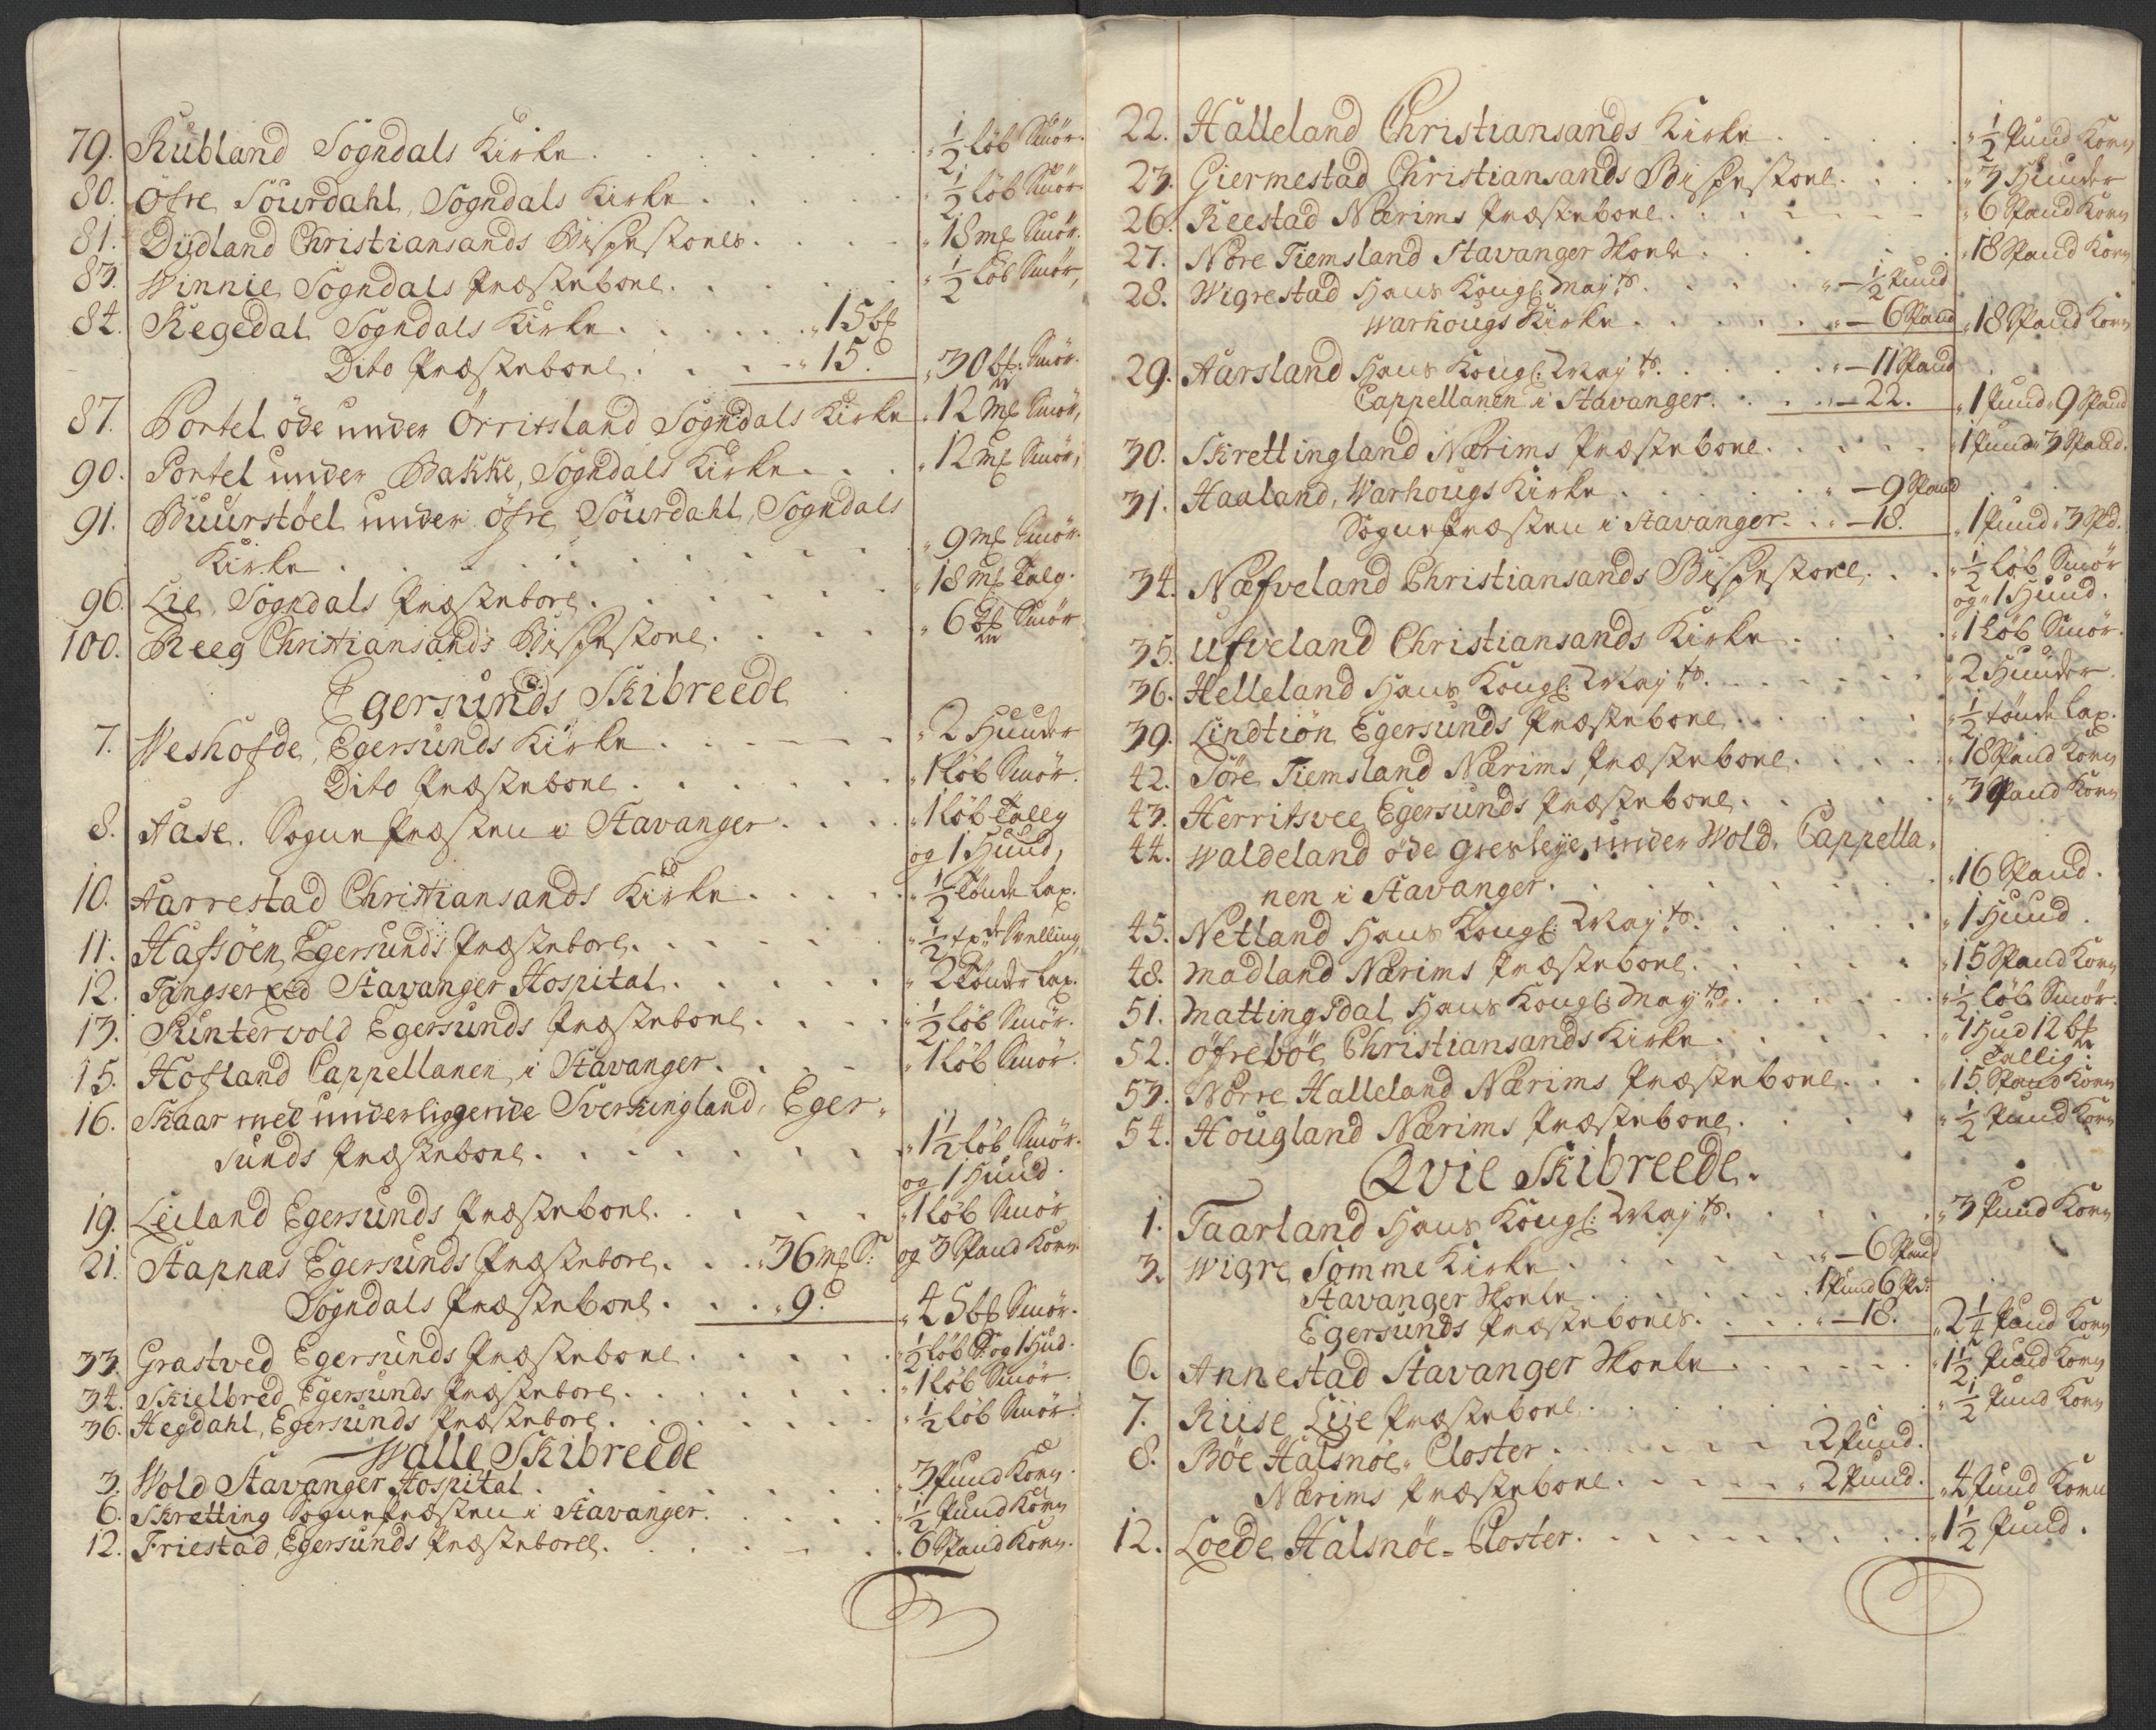 79. Rubland Sogndals Kirke . . . . . . . ½ Løb Smör.
80. Öfre Sourdahl, Sogndals Kirke . . . . . ½ Løb Smör.
81. Dydland Christiansands Bispestoels . . . . 18 mk Smör.
83. Winnie Sogndals Præstebord . . . . . ½ Løb Smör,
84. Regedal Sogndals Kirke . . . . . . 15 bk
Dito Præstebord . . . . . 15. d 30 bk Smör.
87. Portel öde under Örritsland Sogndals Kirke . 12 mk Smör,
90. Portel under Bakke, Sogndals Kirke . . . 12 mk Smör,
91. Buurstöel under öfre Sourdahl, Sogndals
Kirke . . . . . . . . . 9 mk Smör.
96. Lie, Sogndals Præstebord . . . . . . 18 mk Talg.
100. Reeg Christiansands Bispestoel . . . . 6 bk Smör
Egersunds Skibreede
7. Weshofde, Egersunds Kirke . . . . . . 2 Huuder
Dito Præstebord . . . . . . 1 Løb Smör.
8. Aase. Sogne Præsten i Stavanger . . . . 1 Løb Tallg
og 1 Huud,
10. Aarrestad Christiansands Kirke . . . . ½ tönde Lax.
11. Hafsöen Egersunds Præstebord . . . . . ½ tønde Svelling,
12. Tengsereed Stavanger Hospital . . . . . 2 Tönder Lax.
13. Puntervold Egersunds Præstebord . . . . ½ Løb Smör.
15. Hofland Cappellanen i Stavanger . . . . 1 Løb Smör.
16. Skaar med underliggende Sverkingland, Eger-
sunds Præstebord . . . . . . . . 1½ Løb Smör.
og 1 Huud.
19. Leiland Egersunds Præstebord . . . . . 1 Løb Smör
og 3 Spand Korn.
21. Stapnæs Egersunds Præstebord . . . 36 mk S:
Sogndals Præstebord . . . . 9. d 45 bk Smör.
33. Grastved Egersunds Præstebord . . . . . ½ Løb S og 1 Hud.
34. Skielbred, Egersunds Præstebord . . . . . . 1 Løb Smör.
36. Hegdahl, Egersunds Præstebord . . . . . . ½ Løb Smör.
Walle Skibreede
3. Wold Stavanger Hospital . . . . . . . 3 Pund Korn.
6. Skretting Sognepræsten i Stavanger . . . . . ½ Pund Korn
12. Friestad, Egersunds Præstebord . . . . . . 6 Spand Korn.
22. Halleland Christiansands Kirke . . . . . ½ Pund Korn
23. Giermestad Christiansands Bispestoel . . . . 3 Huuder
26. Reestad Nærims Præstebord . . . . . . 6 Spand Korn
27. Nøre Tiemsland Stavanger Skoele . . . . . 18 Spand Korn
28. Wigrestad Hans Kongl: May:ts . . . . . — ½ Pund
Warhougs Kirke . . . . . . — 6 Spand 18 Spand Korn
29. Aarsland Hans Kongl: May:ts . . . . . — 11 Spand
Cappellanen i Stavanger . . . — 22. 1 Pund 9 Spand
30. Skrettingland Nærims Præstebord . . . . . 1 Pund 3 Spand.
31. Haaland, Warhougs Kirke . . . . . . — 9 Spand
Sognepræsten i Stavanger . . — 18. 1 Pund 3 Spd.
34. Næfveland Christiansands Bispestoel . . . ½ Løb Smör
og 1 Huud.
35. Ufveland Christiansands Kirke . . . . . 1 Løb Smör.
36. Helleland Hans Kongl: May:ts . . . . . . 2 Huuder
39. Lindtiön Egersunds Præstebord . . . . . ½ tönde Lax.
42. Söre Tiemsland Nærims Præstebord . . . . 18 Spand Korn
43. Herritsvee Egersunds Præstebord . . . . . 3 Spand Korn
44. Waldeland öde Græsleye under Wold. Cappella-
nen i Stavanger . . . . . . . . . 16 Spand.
45. Netland Hans Kongl: May:ts . . . . . . 1 Huud.
48. Madland Nærims Præstebord . . . . . . 15 Spand Korn
51. Mattingsdal Hans Kongl: May:ts . . . . . ½ Løb Smör.
52. Öfreböe Christiansands Kirke . . . . . . 1 Hud 12 bk
Tallig.
53. Nörre Halleland Nærims Præstebord . . . 15 Spand Korn
54. Hougland Nærims Præstebord . . . . . ½ Pund Korn
Qvie Skibreede.
1. Taarland Hans Kongl: May:ts . . . . . . 3 Pund Korn
3. Wigre Somme Kirke . . . . . . . — 6 Spand
Stavanger Skoele . . . . . . 1 Pund 6 Spd:
Egersunds Præstebords . . . . — 18. 2¼ Pund Korn
6. Annestad Stavanger Skoele . . . . . . 1½ Pund Korn
7. Riise Lye Præstebord . . . . . . . . ½ Pund Korn
8. Böe Halsnöe-Closter . . . . . . 2 Pund.
Nærims Præstebord . . . . . . 2 Pund. 4 Pund Korn
12. Loede Halsnöe-Closter . . . . . . . . 1½ Pund.